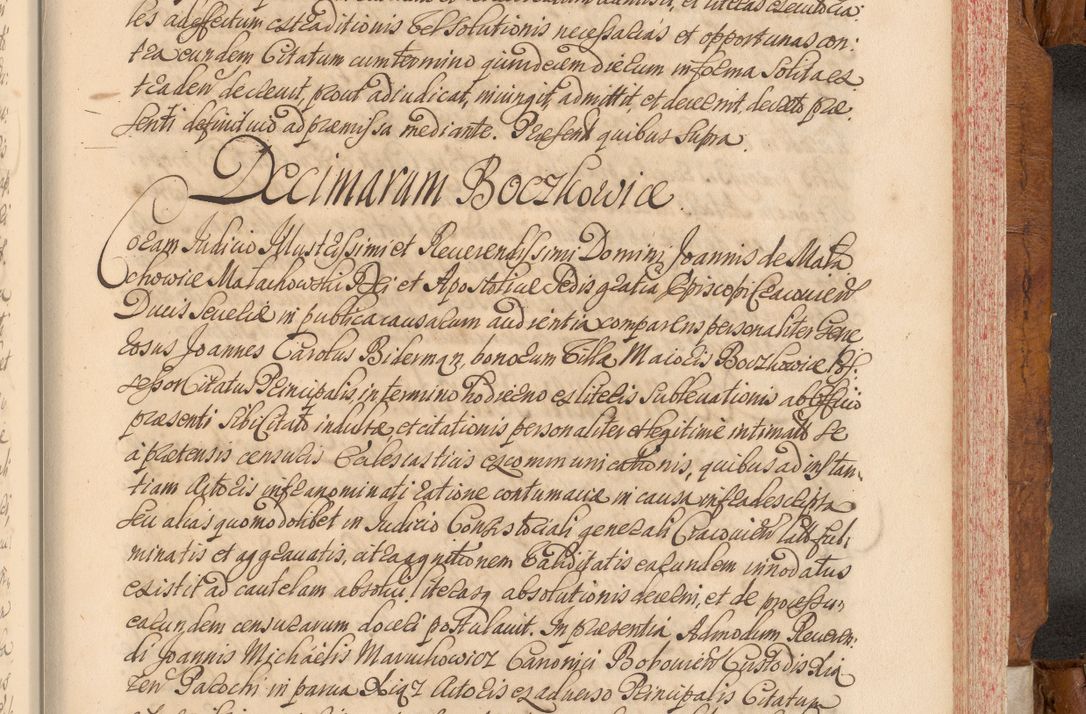 les ad effectum extraditionis vel solutionis necessarias et opportunas con:
tra eundem Citatum cum termino quindecim dierum in forma solita ex
traden decrevit, prout adiudicat, iniungit, admittit et decernit, decreto præ:
senti definitivo ad præmissa mediante. Præsent quibus supra.
Decimarum Boczkowice.
Coram Judicio Illustrissimi et Reverendissimi Domini Joannis de Mała
chowice Małachowski Dei et Apostolicæ Sedis gratia Episcopi Cracovien
Ducis Severiæ in publica causarum audientia comparens personaliter Gene
rosus Joannes Carolus Biderman, bonorum Villæ Maioris Boczkowice Pos
sessor Citatus Principalis in termino hodierno ex literis sublevationis ab officio
præsenti sibi Citato indultæ, et citationis personaliter et legitime intimatæ se
a prætensis censuris Ecclesiasticis excommunicationis, quibus ad instan:
tiam Actoris infranominati ratione contumaciæ in causa infradescripta
seu alias quomodolibet in Judicio Consistoriali generali Cracovien latis ful:
minatis et aggravatis, citra agnitionem validitatis earundem innodatus
existit ad cautelam absolvi literasq absolutionis decerni, et de processu
earundem censurarum doceri postulavit. In præsentia Admodum Reveren:
di Joannis Michaelis Maruchowicz Canonici Bobovien Custodis
Parochi in parva Actoris ex adverso Principalis Citatum